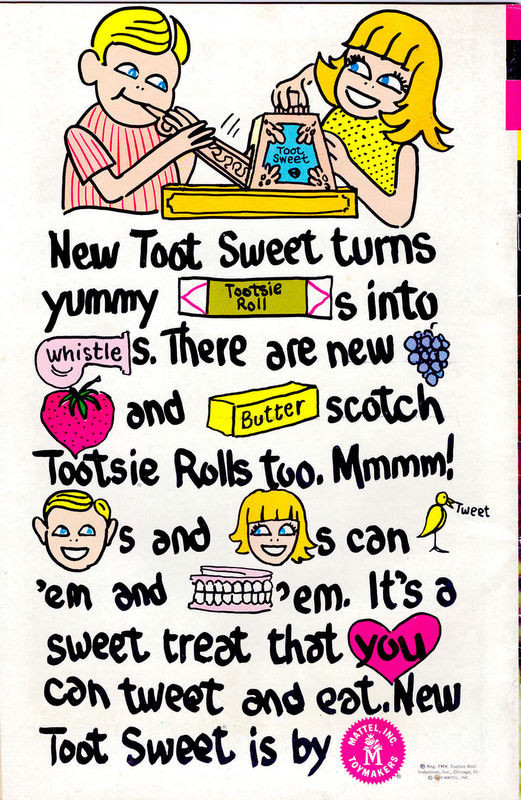 Toot
Sweet
New Toot Sweet turns
yummy Tootsie Roll s into
whistle s. There are new
and Butter scotch
Tootsie Rolls too. Mmmm!
s and s can Tweet
'em and 'em. It's a
sweet treat that you
can tweet and eat. New
Toot Sweet is by MATTEL, INC. TOYMAKERS
® Reg. TMK. Tootsie Roll
Industries, Inc., Chicago, Ill.
MATTEL, INC.